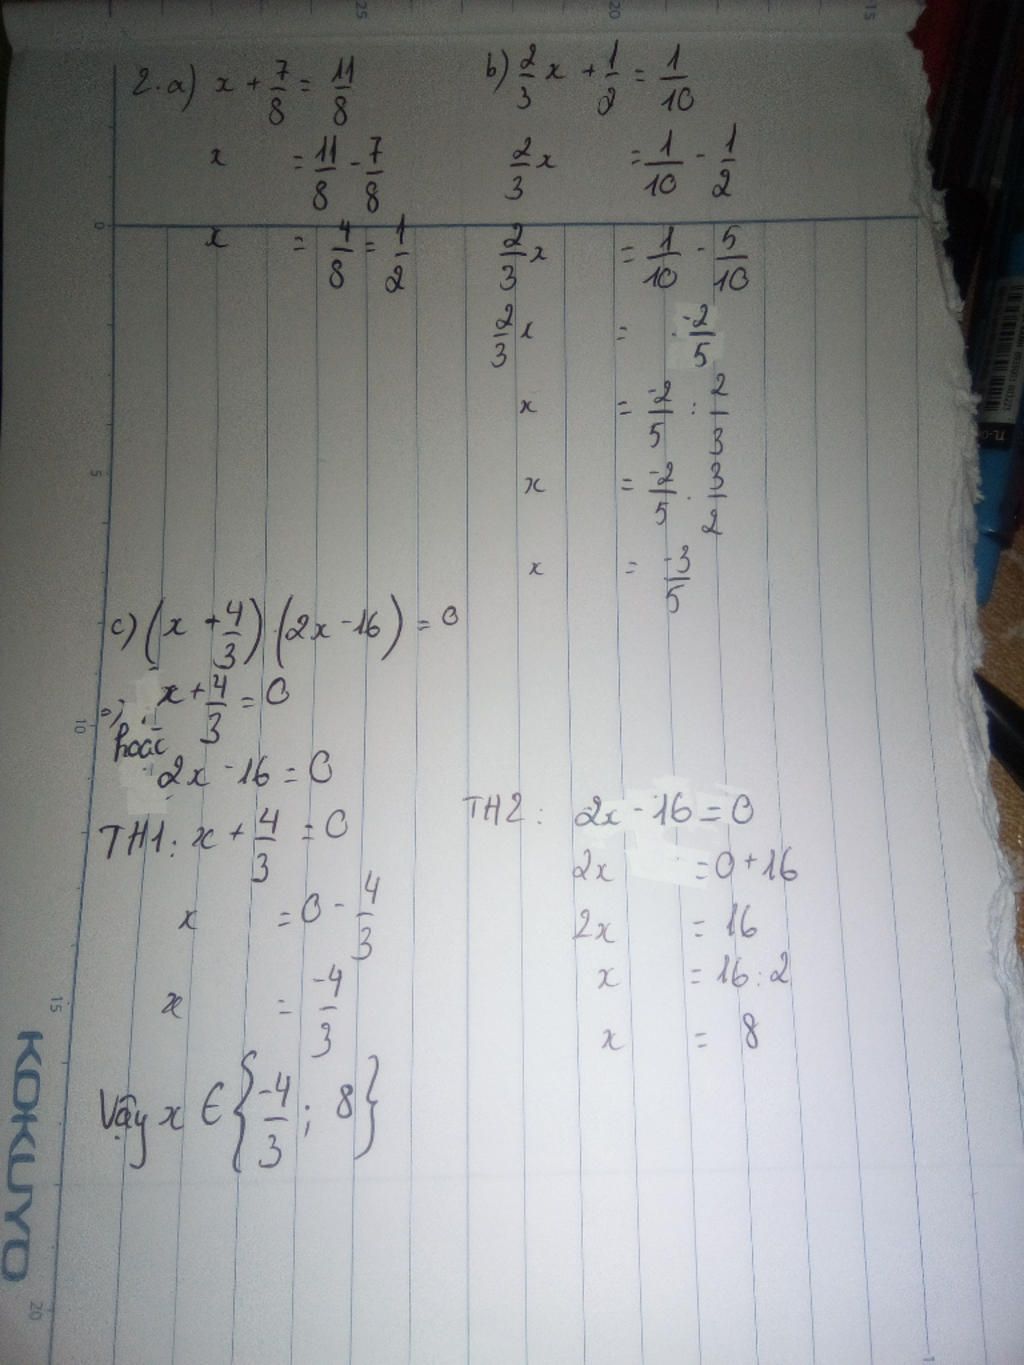 2.a) x + 7/8 = 11/8
x = 11/8 - 7/8
x = 4/8 = 1/2
b) 2/3 x + 1/2 = 1/10
2/3 x = 1/10 - 1/2
2/3 x = 1/10 - 5/10
2/3 x = -2/5
x = -2/5 : 2/3
x = -2/5 . 3/2
x = -3/5
c) (x + 4/3).(2x - 16) = 0
x + 4/3 = 0
hoặc
2x - 16 = 0
TH1: x + 4/3 = 0
x = 0 - 4/3
x = -4/3
TH2: 2x - 16 = 0
2x = 0 + 16
2x = 16
x = 16 : 2
x = 8
Vậy x ∈ {-4/3 ; 8}
KOKUYO
25
20
15
0
5
10
15
20